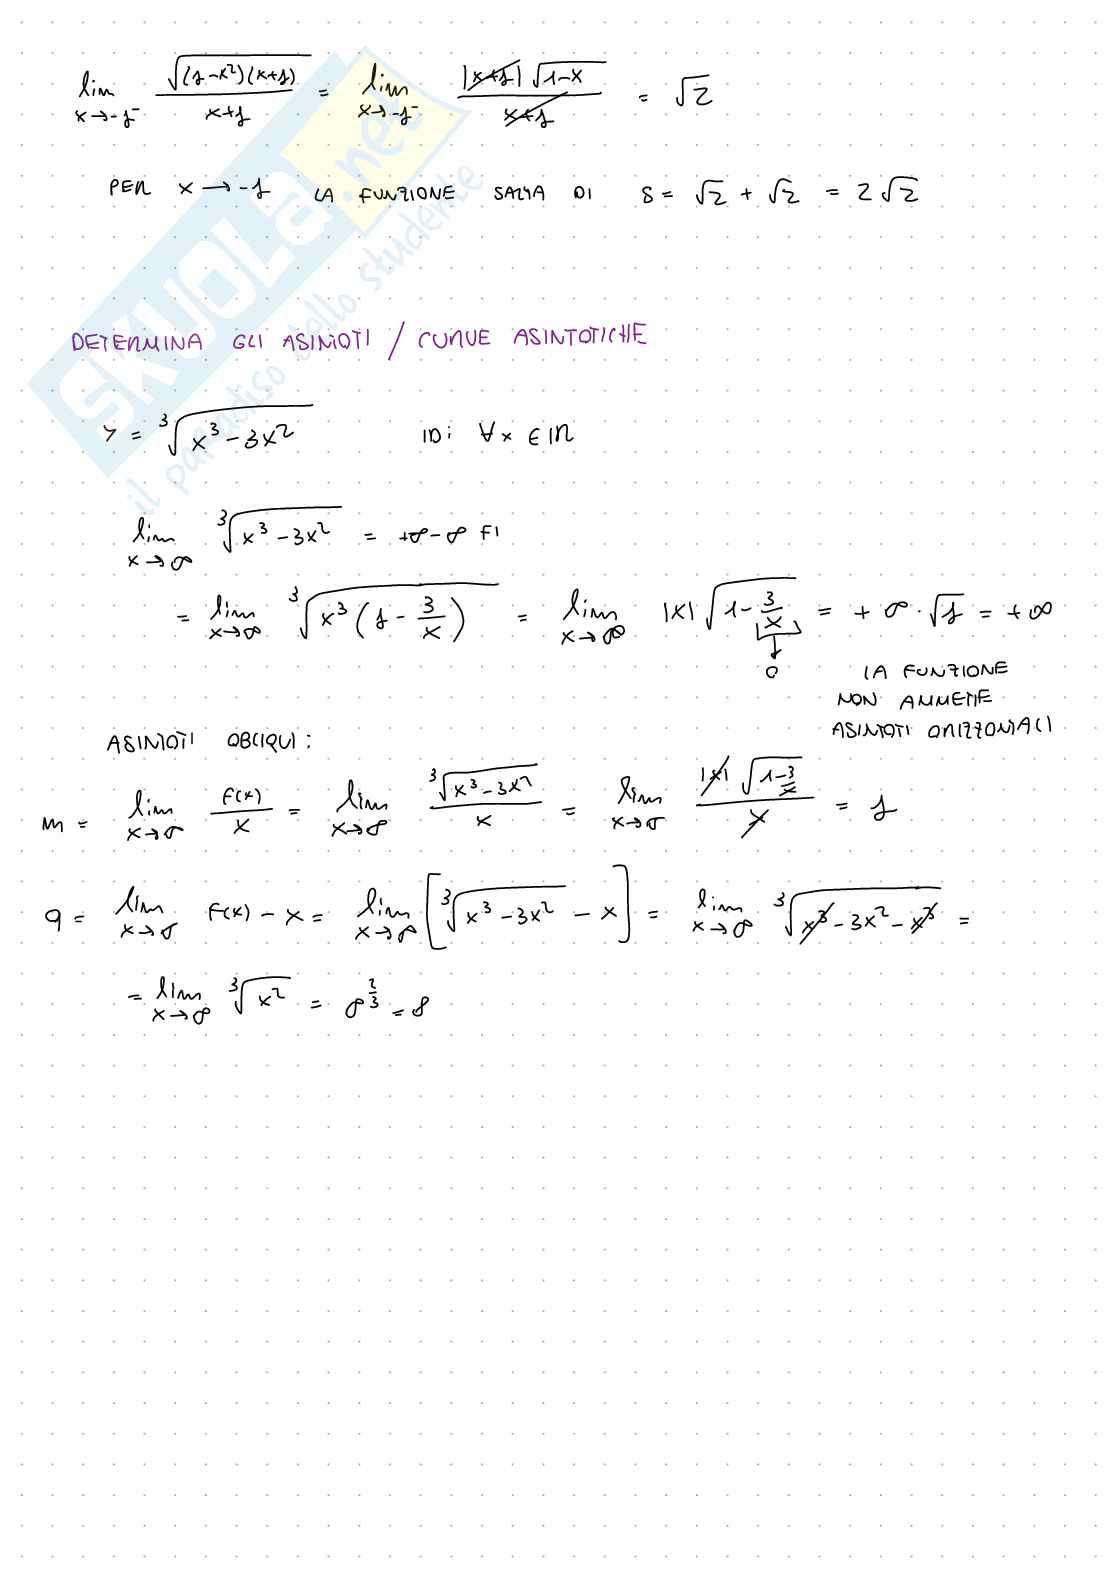 lim x→-1⁻ √((1-x²)(x+1)) / x+1 = lim x→-1⁻ |x+1| √1-x / x+1 = √2
PER x → -1 LA FUNZIONE SALTA DI S = √2 + √2 = 2√2
DETERMINA GLI ASINTOTI / CURVE ASINTOTICHE
y = ³√x³-3x² ID: ∀x ∈ IR
lim x→∞ ³√x³-3x² = +∞-∞ FI
= lim x→∞ ³√x³(1 - 3/x) = lim x→∞ |x| √1-3/x = +∞·√1 = +∞
0
LA FUNZIONE
NON AMMETTE
ASINTOTI ORIZZONTALI
ASINTOTI OBLIQUI:
m = lim x→∞ f(x)/x = lim x→∞ ³√x³-3x² / x = lim x→∞ |x| √1-3/x / x = 1
q = lim x→∞ f(x) - x = lim x→∞ [³√x³-3x² - x] = lim x→∞ ³√x³-3x²-x³ =
= lim x→∞ ³√x² = ∞^2/3 = ∞
SKUOLA.net
il paradiso dello studente